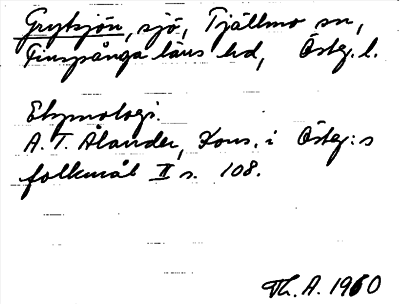 Grytsjön, sjö, Tjällmo sn,
Finspånga läns hd, Östg. l.
Etymologi.
A. T. Ålander, Kons. i Östg:s
folkmål II s. 108.
Th. A. 1960